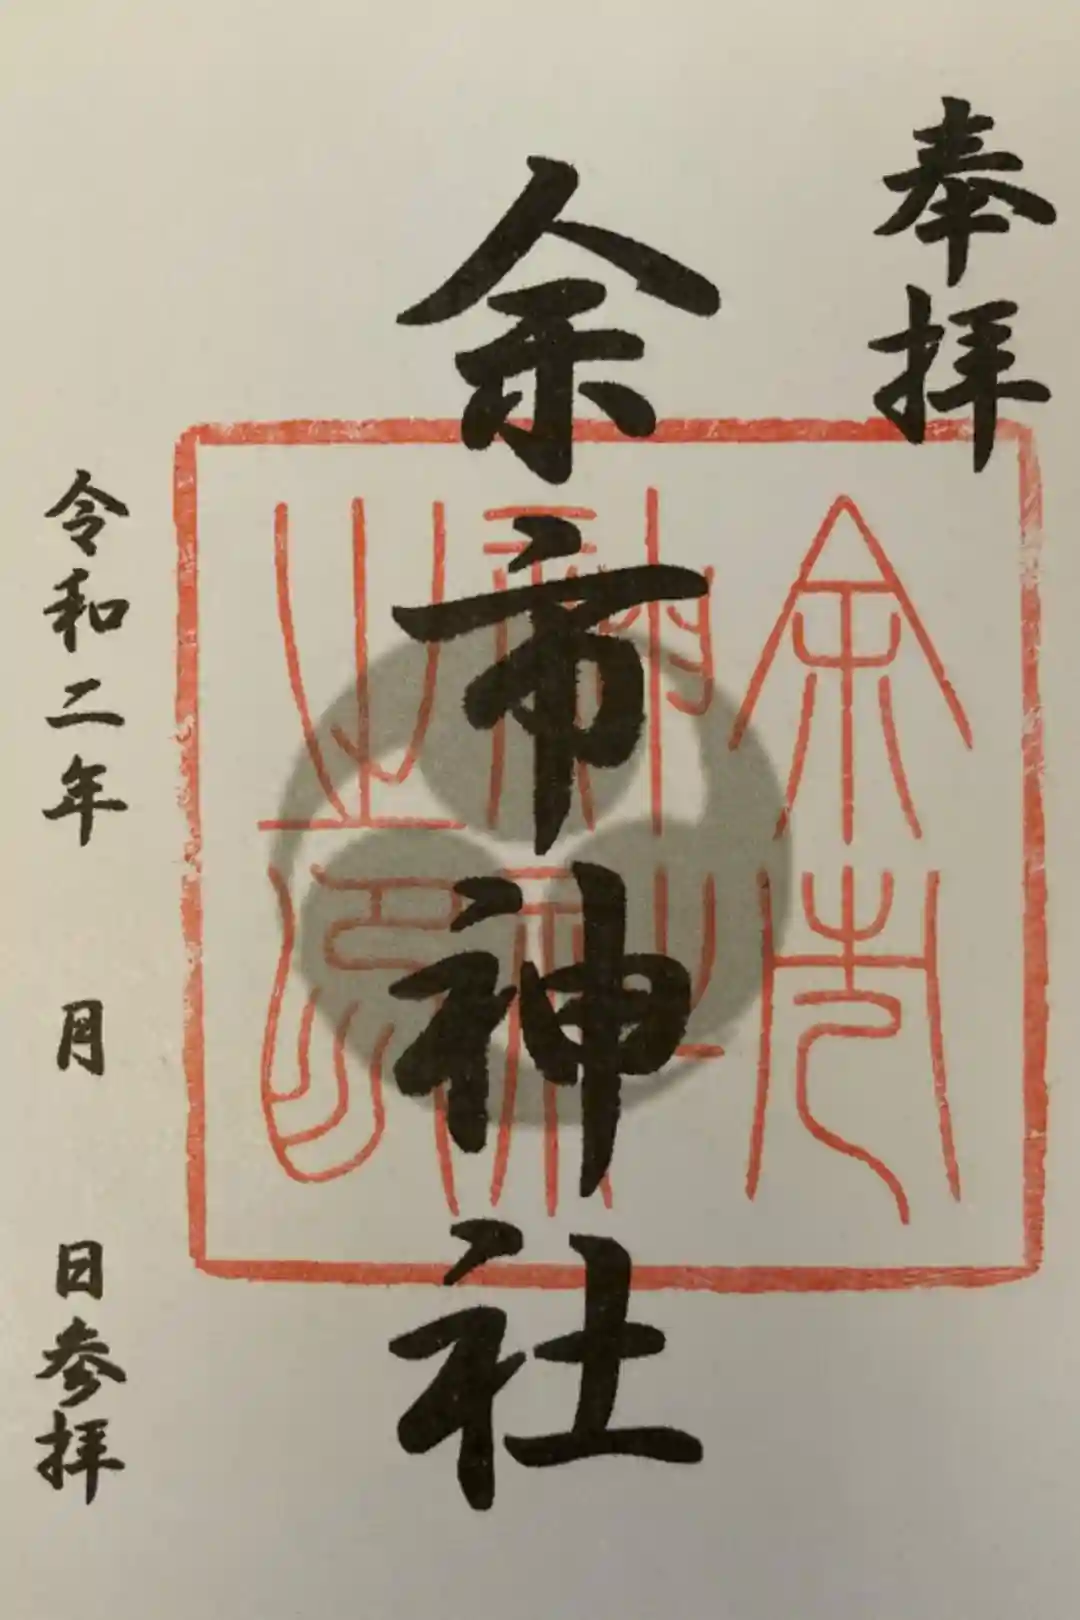 奉拝
余市神社
令和二年　月　日参拝
余市
神社
之印